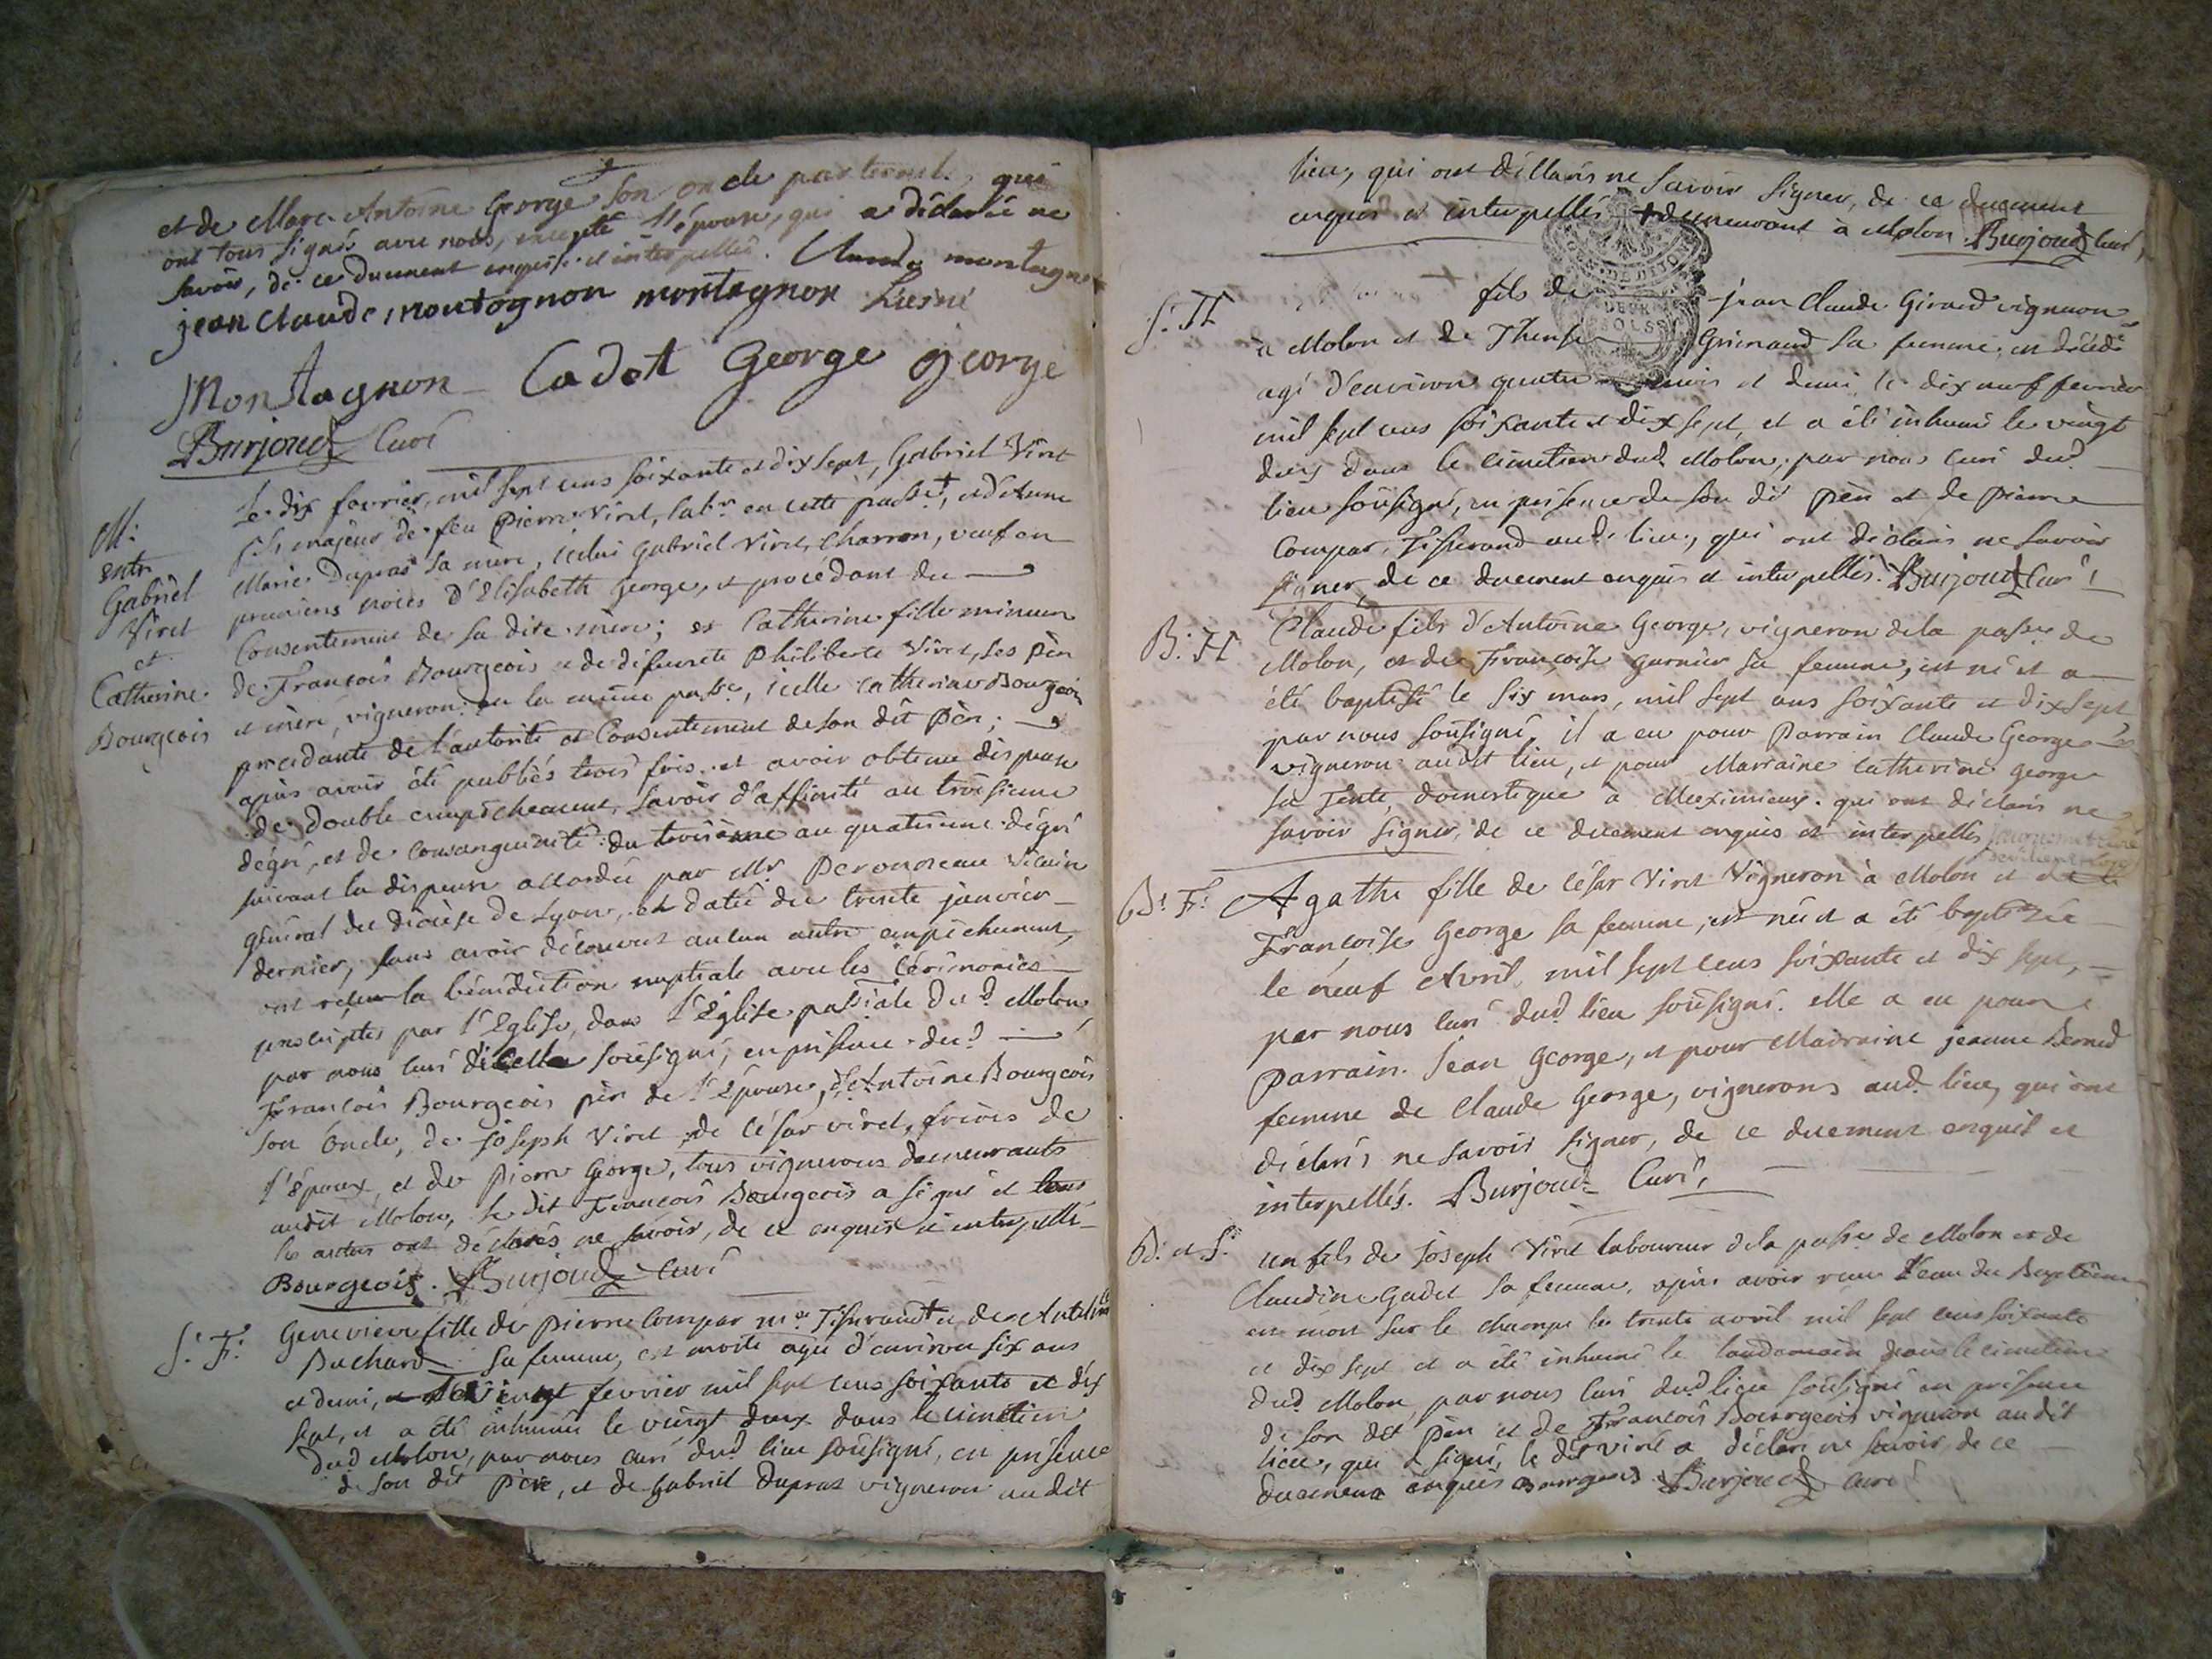 et de Marc Antoine George son oncle paternel, qui
ont tous signés avec nous, excepté l'épouse, qui a déclarée ne
savoir, de ce duement enquise et interpellée. Claude montagnon
jean claude montognon montagnon
Montagnon Cadot George george
Burjoud Curé
M:
entre
Gabriel
Viret
et
Catherine
Bourgeois
Le dix fevrier, mil sept cens soixante et dix sept, Gabriel Viret
fils majeur de feu Pierre Viret, labr en cette passe +, et d'Anne
Marie Dupras sa mère, icelui Gabriel Viret, Charron, veuf en
premieres noces d'Elisabeth George, et procédant du
Consentement de sa dite mère; et Catherine fille mineure
de François Bourgeois et de défuncte Philiberte Viret, ses père
et mère, vigneron en la même passe, icelle Catherine Bourgeois
procedante de l'autorité et Consentement de son dit père;
après avoir été publiés trois fois et avoir obtenu dispense
de double empêchement, savoir d'affinité au troisieme
dégré, et de consanguinité du troisième au quatrieme dégré
suivant la dispense accordée par Mr Vicaire
général du diocèse de Lyon, et datée du trente janvier
dernier, sans avoir découvert aucun autre empêchement,
ont reçeu la bénédiction nuptiale avec les Cérémonies
prescriptes par l'Eglise, dans l'Eglise passiale dud. Molon,
par nous curé d'icelle soussigné, en présence dud.
François Bourgeois père de l'Epouse, d'Antoine Bourgeois
son Oncle, de joseph Viret de César viret, frères de
l'Epoux, et de Pierre George, tous vignerons demeurants
audit Molon, le dit François Bourgeois a signé et tous
les autres ont déclarés ne savoir, de ce enquis et interpellé
Bourgeois. Burjoud Curé
S: F:
Genevieve fille de pierre Compar Tisserand + et de
Buchard sa femme, est morte agée d'environ six ans
et demi, le vingt fevrier mil sept cens soixante et dix
sept, et a été inhumée le vingt deux dans le cimetiere
dud Molon, par nous curé dud lieu soussigné, en présence
de son dit Père, et de Gabriel Dupras vigneron audit
lieu, qui ont déclarés ne savoir signer, de ce duement
enquis et interpellés + demeurant à Molon Burjoud Curé,
S: H
fils de jean Claude Giraud vigneron
à Molon et de Grimaud sa femme, est décédé
agé d'environ quatre mois et demi le dix neuf fevrier
mil sept cens soixante et dix sept, et a été inhumé le vingt
deux dans le cimetiere dud Molon, par nous curé dud
lieu soussigné, en présence de son dit père et de pierre
Compar, Tisserand audt lieu, qui ont déclarés ne savoir
signer, de ce duement enquis et interpellés. Burjoud Curé
B: H
Claude fils d'Antoine George, vigneron de la passe de
Molon, et de Françoise garnier sa femme, est né et a
été baptisé le six mars, mil sept cens soixante et dix sept
par nous soussigné, il a eu pour Parrain Claude George
vigneron audit lieu, et pour Marraine Catherine george
sa Tente, domestique à Meximieux qui ont déclarés ne
savoir signer, de ce duement enquis et interpellés
B: F:
Agathe fille de César Viret Vigneron à Molon et de
Françoise George sa femme, est née et a été baptizée
le neuf Avril, mil sept cens soixante et dix sept,
par nous curé dud lieu soussigné. elle a eu pour
Parrain Jean George, et pour Marraine jeanne Bernard
femme de Claude George, vignerons aud lieu, qui ont
déclarés ne savoir signer, de ce duement enquis et
interpellés. Burjoud Curé,
B: et S:
un fils de joseph Viret laboureur de la passe de Molon et de
Claudine Gadet sa femme, après avoir reçu l'eau du Baptême
est mort sur le champs le trente avril mil sept cens soixante
et dix sept et a été inhumé le landemain dans le cimetiere
dud Molon, par nous curé dud lieu soussigné en présence
de son dit Père et de François Bourgeois vigneron audit
lieu, qui a signé, le dit viret a déclaré ne savoir, de ce
duement enquis Bourgeois Burjoud Curé